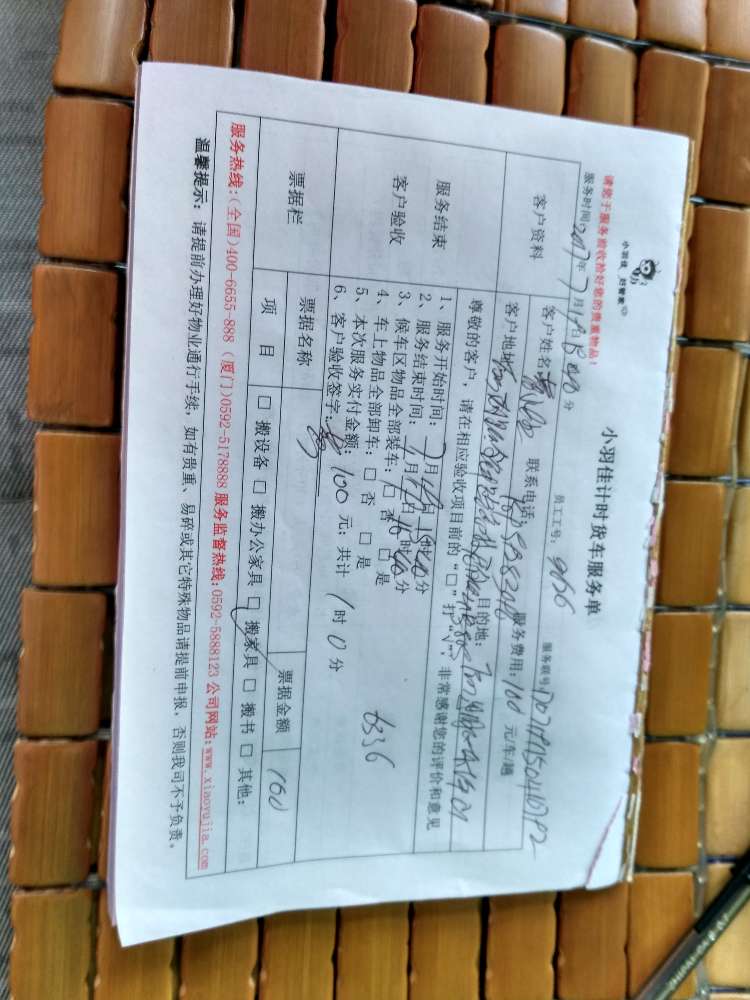 小羽佳 好管家
小羽佳计时货车服务单
请您于服务前收捡好您的贵重物品!
服务时间:2017年7月 日 时 分 员工工号: 9656 服务联号:
客户资料
客户姓名: 联系电话: 服务费用:100 元/车/趟
客户地址: 目的地:
尊敬的客户,请在相应验收项目前的“□”打“√”, 非常感谢您的评价和意见
服务结束
客户验收
1、服务开始时间: 7月 日 时 分
2、服务结束时间: 7月 日16时00分
3、候车区物品全部装车:□ 否 □ 是
4、车上物品全部卸车:□ 否 □ 是
5、本次服务实付金额: 100 元;共计 1 时 0 分
6、客户验收签字:
6336
票据栏
票据名称 票据金额 100
项 目 □ 搬设备 □ 搬办公家具 □ 搬家具 □ 搬书 □ 其他:
服务热线:(全国)400-6655-888 (厦门)0592-5178888 服务监督热线:0592-5888123 公司网站:www.xiaoyujia.com
温馨提示:请提前办理好物业通行手续,如有贵重、易碎或其它特殊物品请提前申报,否则我司不予负责。